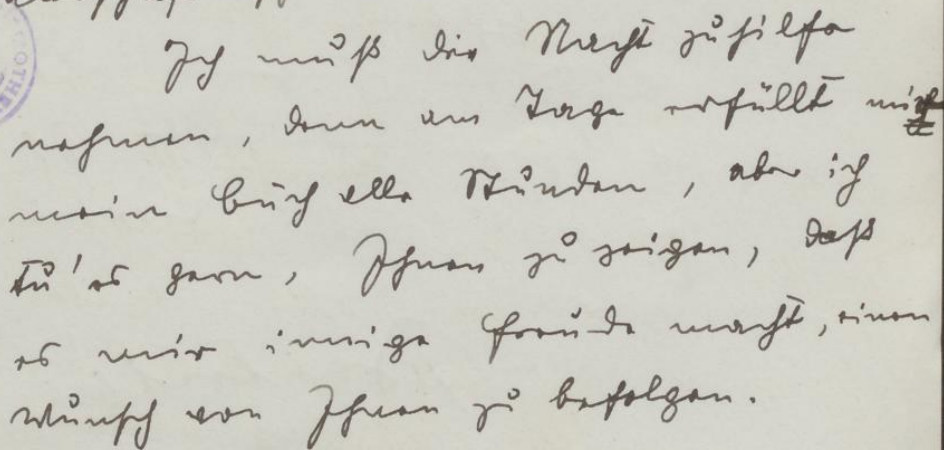 Ich muß die Nacht zuhilfe
nehmen, denn am Tage erfüllt mich
mein Buch alle Stunden, aber ich
tu' es gern, Ihnen zu zeigen, daß
es mir innige Freude macht, einen
Wunsch von Ihnen zu befolgen.